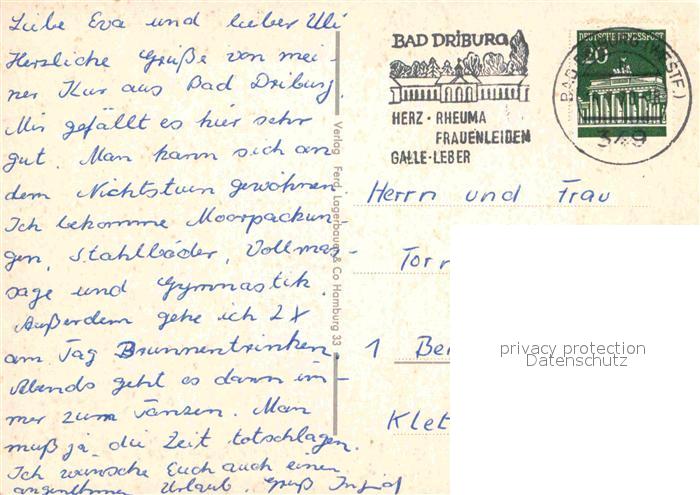 Liebe Eva und lieber Uli
Herzliche Grüße von mei-
ner Kur aus Bad Driburg.
Mir gefällt es hier sehr
gut. Man kann sich an
dem Nichtstun gewöhnen.
Ich bekomme Moorpackun-
gen, Stahlbäder, Vollmas-
sage und Gymnastik.
Außerdem gehe ich 2x
am Tag Brunnentrinken
Abends geht es dann im-
mer zum Tanzen. Man
muß ja die Zeit totschlagen.
Ich wünsche Euch auch einen
angenehmen Urlaub. Gruß Ingrid
Verlag Ferd. Lagerbauer & Co Hamburg 33
BAD DRIBURG
HERZ · RHEUMA
FRAUENLEIDEN
GALLE · LEBER
DEUTSCHE BUNDESPOST
20
349
Herrn und Frau
Torr
1 Ber
Klet
privacy protection
Datenschutz